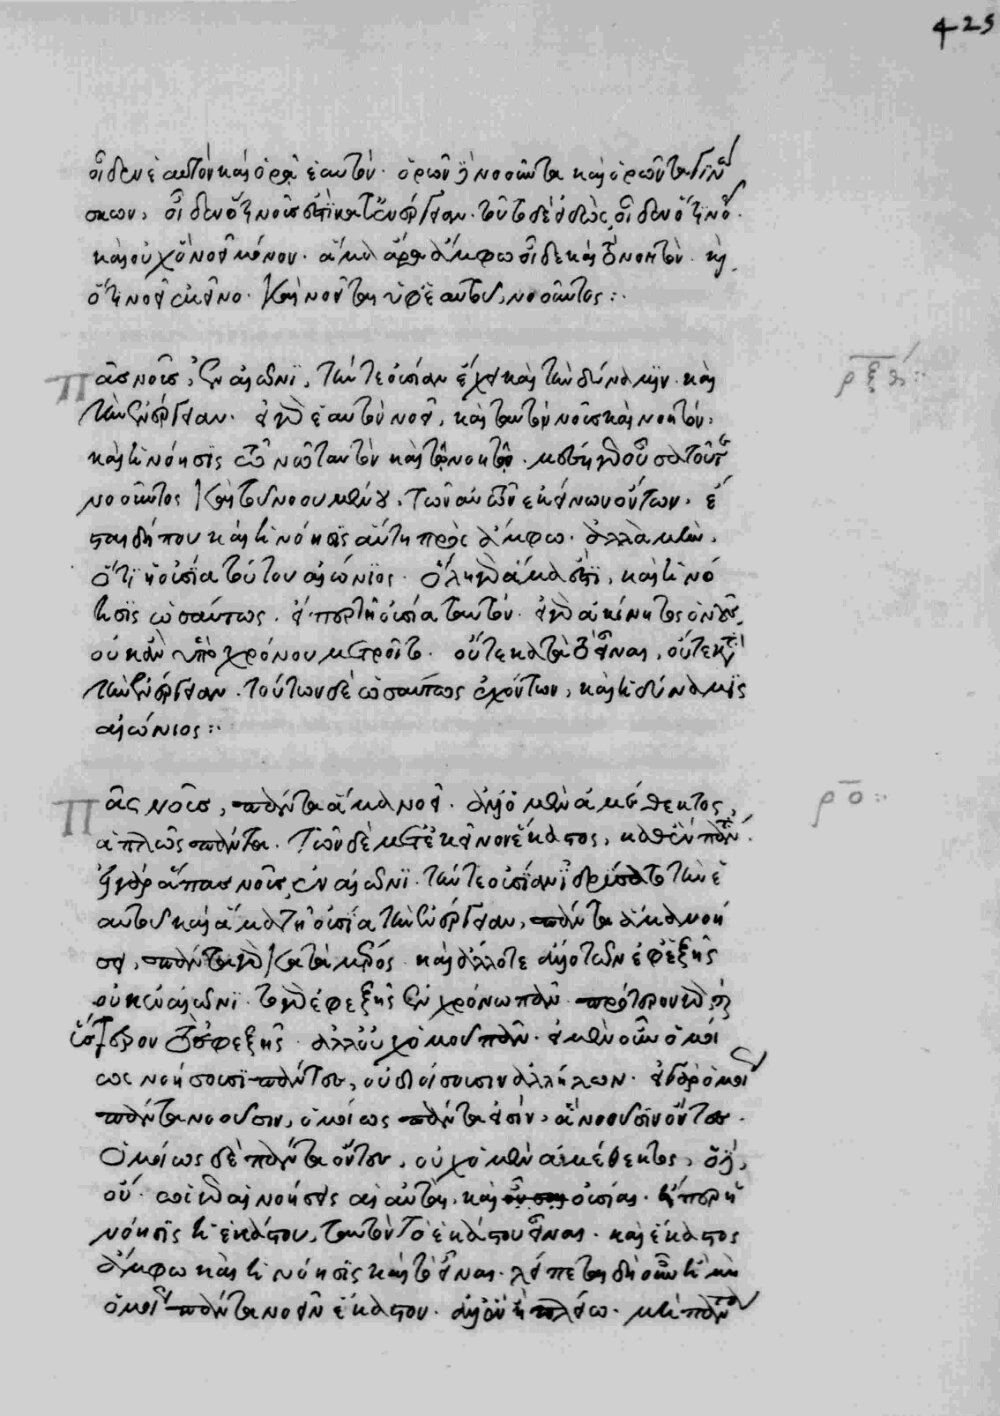 οἶδεν ἑαυτὸν καὶ ὁρᾷ ἑαυτόν. ὁρῶν δὲ νοοῦντα καὶ ὁρῶντα γινώ
σκων, οἶδεν ὅτι νοῦς ἐστὶ κατ' ἐνέργειαν. τοῦτο δὲ εἰδὼς, οἶδεν ὅτι νοεῖ.
καὶ οὐχ ὃ νοεῖ μόνον. ἅμα ἄρα ἄμφω οἶδε καὶ τὸ νοητὸν. καὶ
ὅτι νοεῖ ἐκεῖνο. καὶ νοεῖται ὑφ' ἑαυτοῦ, νοοῦντος:·
ρξθ:
Πᾶς νοῦς, ἐν αἰῶνι, τήν τε οὐσίαν ἔχει καὶ τὴν δύναμιν. καὶ
τὴν ἐνέργειαν. εἰ γὰρ ἑαυτὸν νοεῖ, καὶ ταυτὸν νοῦς καὶ νοητὸν,
καὶ ἡ νόησις τῷ νῷ ταυτὸν καὶ τῷ νοητῷ. μέση γὰρ οὖσα τοῦ τε
νοοῦντος καὶ τοῦ νοουμένου. τῶν αὐτῶν ἐκείνων ὄντων, ἔ
σται δήπου καὶ ἡ νόησις αὕτη πρὸς ἄμφω. ἀλλὰ μὴν,
ὅτι ἡ οὐσία τούτου αἰώνιος. ὅλη γὰρ ἅμα ἐστὶ, καὶ ἡ νό
ησις ὡσαύτως. εἴπερ τῇ οὐσίᾳ ταυτὸν. εἰ γὰρ ἀκίνητος ὁ νοῦς,
οὐκ ἂν ὑπὸ χρόνου μετροῖτο. οὔτε κατὰ τὸ εἶναι, οὔτε κατὰ
τὴν ἐνέργειαν. τούτων δὲ ὡσαύτως ἐχόντων, καὶ ἡ δύναμις
αἰώνιος:·
ρο:
Πᾶς νοῦς, πάντα ἅμα νοεῖ. ἀλλ' ὁ μὲν ἀμέθεκτος,
ἁπλῶς πάντα. τῶν δὲ μετ' ἐκεῖνον ἕκαστος, καθ' ἓν πάντα.
εἰ γὰρ ἅπας νοῦς ἐν αἰῶνι. τήν τε οὐσίαν ἱδρύσατο τὴν ἑ
αυτοῦ καὶ ἅμα τῇ οὐσίᾳ τὴν ἐνέργειαν, πάντα ἅμα νοή
σει, πάντα γὰρ κατὰ μέρος καὶ ἄλλοτε ἄλλο τῶν ἐφεξῆς
οὐκ ἐν αἰῶνι. τὸ γὰρ ἐφεξῆς ἐν χρόνῳ πᾶν. πρότερον γὰρ καὶ
ὕστερον τὸ ἐφεξῆς. ἀλλ' οὐχ ὁμοῦ πᾶν. εἰ μὲν οὖν ὁμοί
ως νοήσουσι πάντες, οὐ διοίσουσιν ἀλλήλων. εἰ γὰρ ὁμοίως
πάντα νοοῦσιν, ὁμοίως πάντα εἰσὶν, ἃ νοοῦσιν ὄντες.
ὁμοίως δὲ πάντα ὄντες, οὐχ ὁ μὲν ἀμέθεκτος, ὁ δὲ,
οὔ. ὧν γὰρ αἱ νοήσεις αἱ αὐταὶ, καὶ οὐσίαι. εἴπερ ἡ
νόησις ἡ ἑκάστου, ταυτὸν τῷ ἑκάστου εἶναι. καὶ ἕκαστος
ἄμφω καὶ ἡ νόησις καὶ τὸ εἶναι. λείπεται δὴ οὖν ἢ μὴ
ὁμοίως πάντα νοεῖν ἕκαστον. ἀλλ' ἓν ἢ πλείω. μὴ πάντα